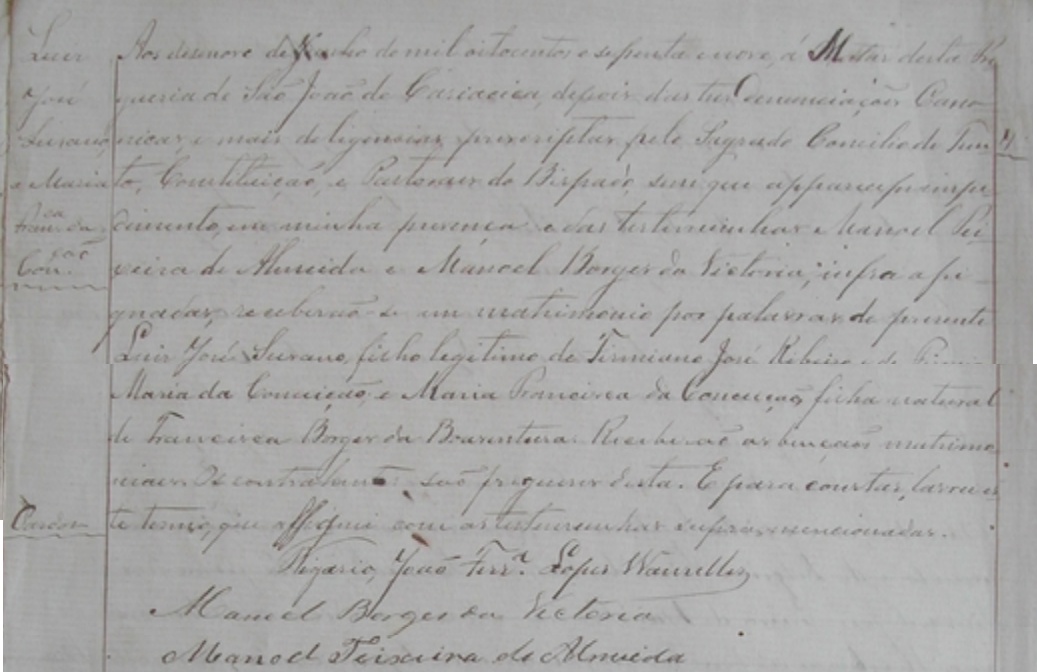 Luis
José
Suzano,
e Maria
Fran.ca da
Con.ção
Aos desenove de Junho de mil oitocentos e septenta e nove, á Matriz desta Fre-
guesia de São João de Cariacica, depois das tres denunciações Cano-
nicas e mais deligencias prescriptas pelo Sagrado Concilio de Tren-
to, Constituição, e Pastoraes do Bispado, sem que apparecesse impe-
dimento, em minha presença e das testimunhas Manoel Tei-
xeira de Almeida e Manoel Borges da Victoria, infra assi-
gnadas, receberão-se em matrimonio por palavras de presente
Luis José Suzano, filho legitimo de Firmiano José Ribeiro e de
Maria da Conceição, e Maria Francisca da Conceição, filha natural
de Francisca Borges da Boaventura. Receberão as bençãos matrimo-
niaes. Os contrahentes são freguezes desta. E para constar, lavrei es-
te termo, que assignei com as testimunhas supra mencionadas.
Vigario, João Ferr.a Lopes Wanzeller
Manoel Borges da Victoria
Manoel Teixeira de Almeida